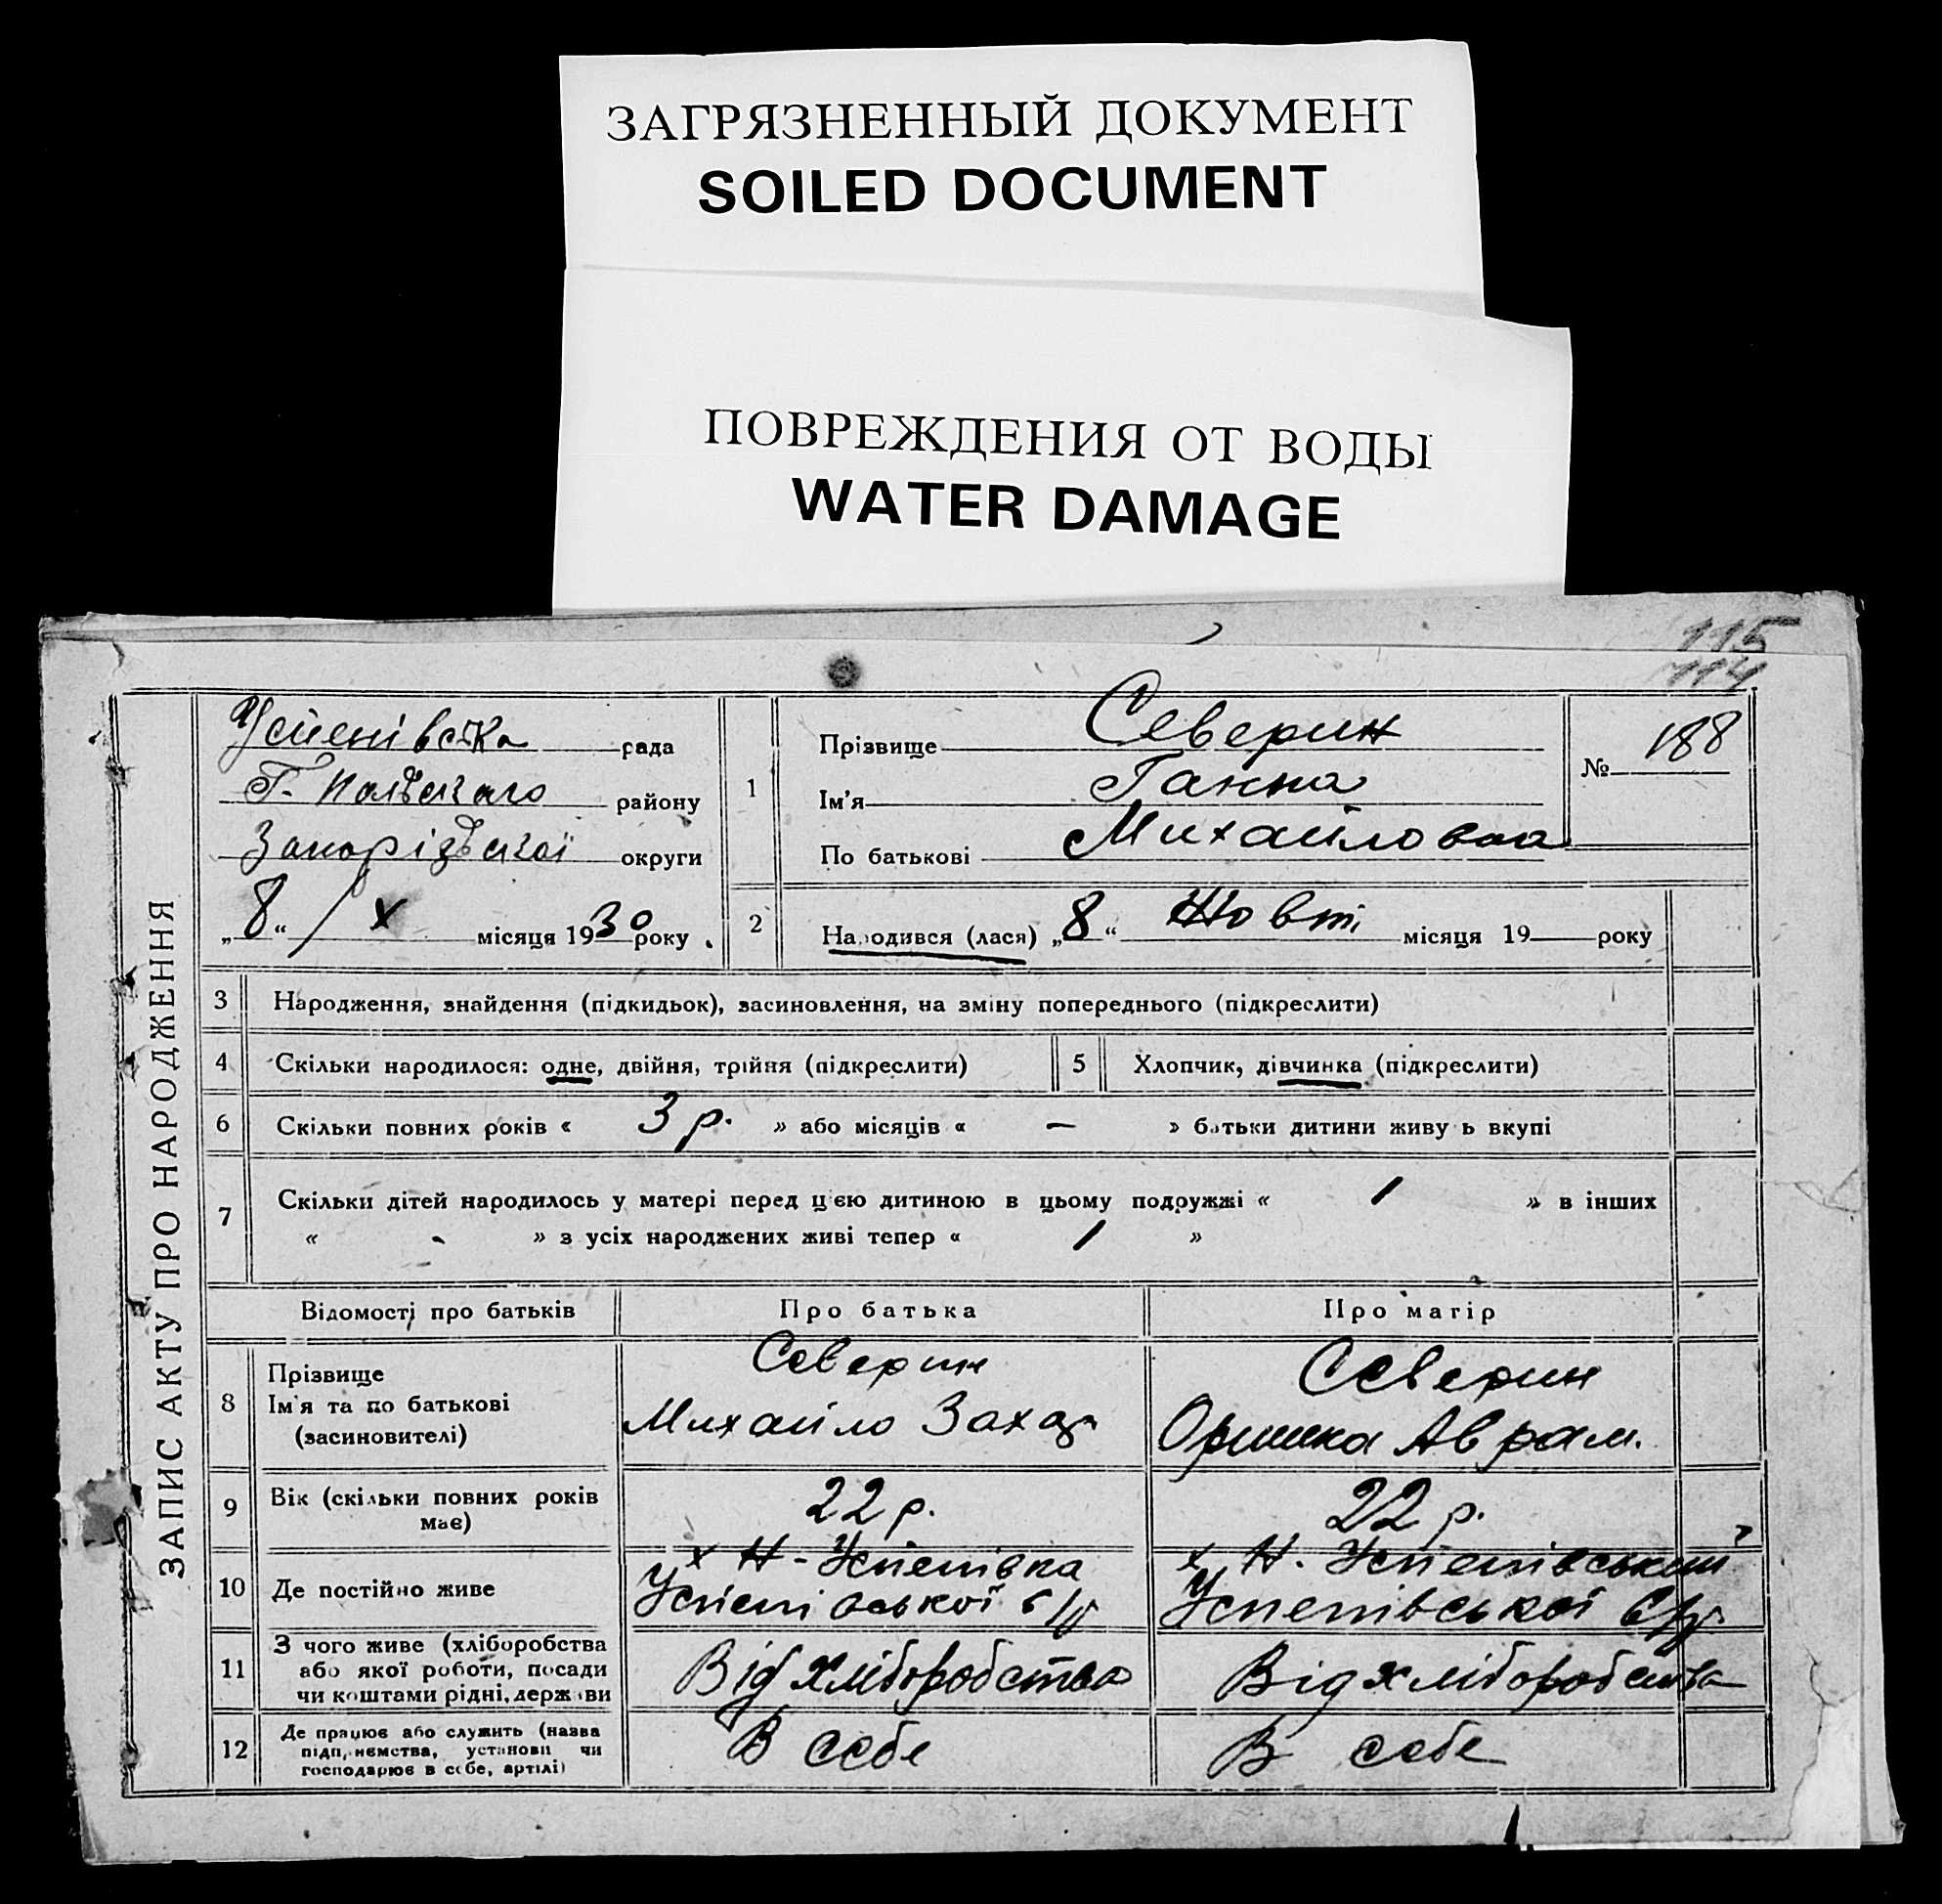 ЗАГРЯЗНЕННЫЙ ДОКУМЕНТ
SOILED DOCUMENT
ПОВРЕЖДЕНИЯ ОТ ВОДЫ
WATER DAMAGE
115
114
ЗАПИС АКТУ ПРО НАРОДЖЕННЯ
Успенівська рада
Г. Польского району
Запорізької округи
„8“ / X місяця 1930 року
1
Прізвище Северин
Ім'я Ганна
По батькові Михайловна
№ 188
2 Народився (лася) „8“ Жовт. місяця 19 року
3 Народження, знайдення (підкидьок), засиновлення, на зміну попереднього (підкреслити)
4 Скільки народилося: одне, двійня, трійня (підкреслити) 5 Хлопчик, дівчинка (підкреслити)
6 Скільки повних років « 3 р. » або місяців « — » батьки дитини живуть вкупі
7 Скільки дітей народилось у матері перед цією дитиною в цьому подружжі « 1 » в інших
« - » з усіх народжених живі тепер « 1 »
Відомості про батьків Про батька Про матір
8 Прізвище
Ім'я та по батькові
(засиновителі)
Северин
Михайло Захар
Северин
Оришка Аврам.
9 Вік (скільки повних років
має)
22 р.
22 р.
10 Де постійно живе
х Н-Успенівка
Успенівської с/р
х Н. Успенівський
Успенівської с/р.
11 З чого живе (хліборобства
або якої роботи, посади
чи коштами рідні, держави
Від хліборобства
Від хліборобства
12 Де працює або служить (назва
підприємства, установи чи
господарює в себе, артілі)
В себе
В себе